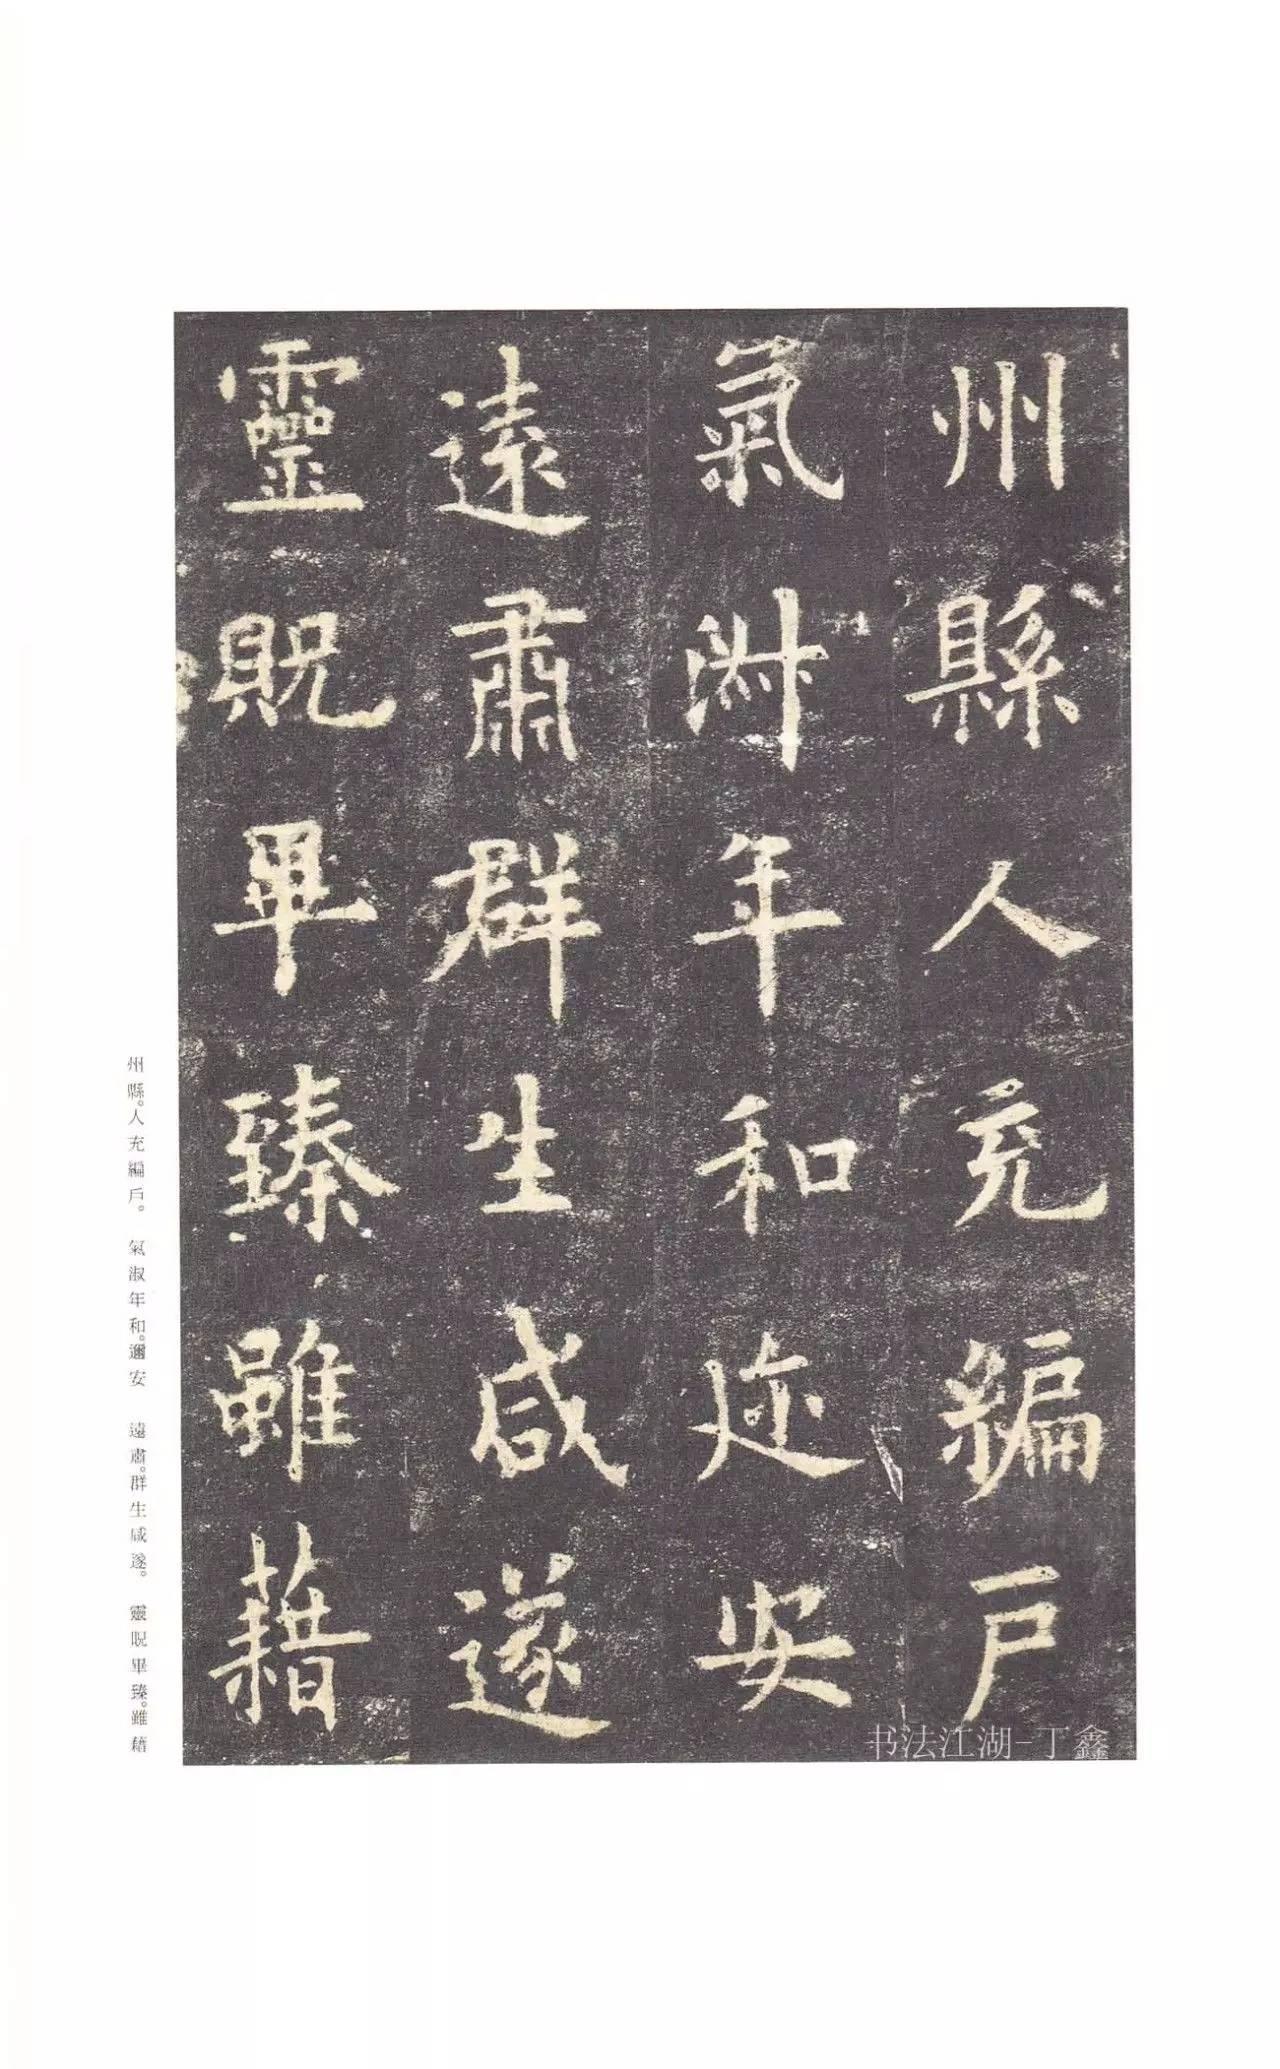 州縣人充編戶
氣淑年和迩安
遠肅群生咸遂
靈貺畢臻雖藉
州縣。人充編戶。　氣淑年和。邇安　遠肅。群生咸遂。　靈貺畢臻。雖藉
书法江湖-丁鑫